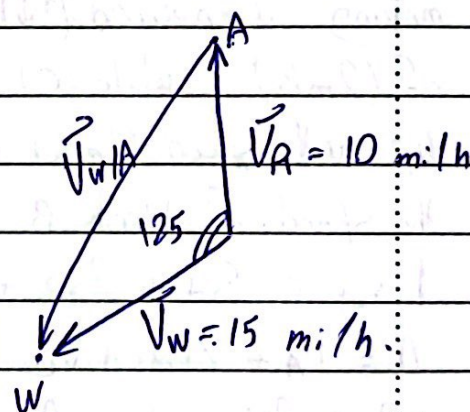 A
V⃗W/A
V⃗A = 10 mi/h
125
V⃗W = 15 mi/h.
W